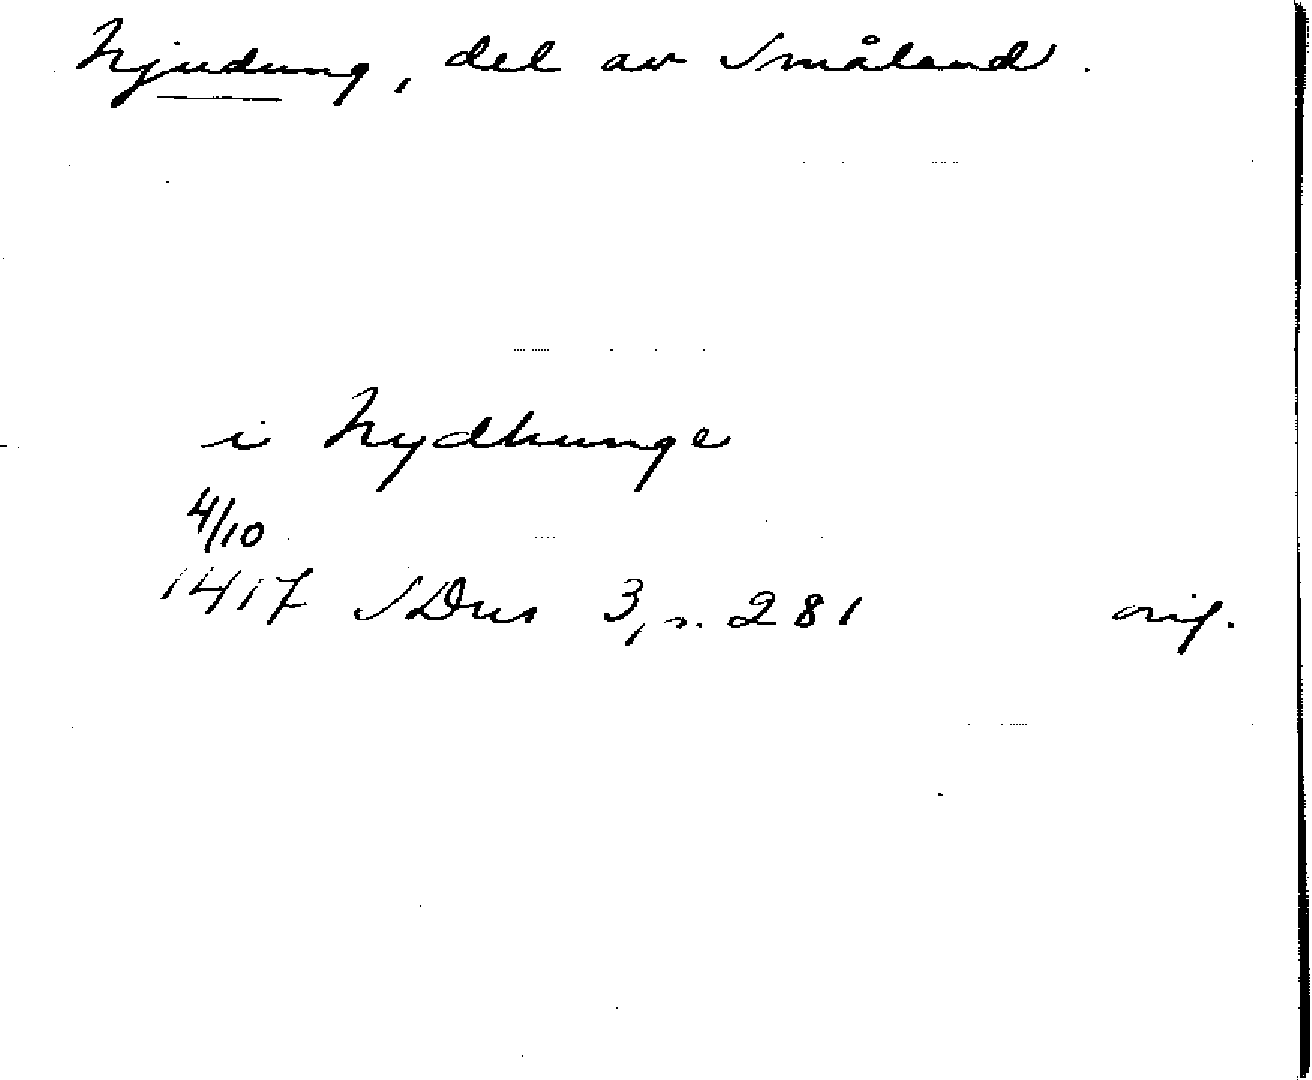 Njudung, del av Småland.
i Nydhunge
4/10
1417 SDns 3, s. 281 orig.